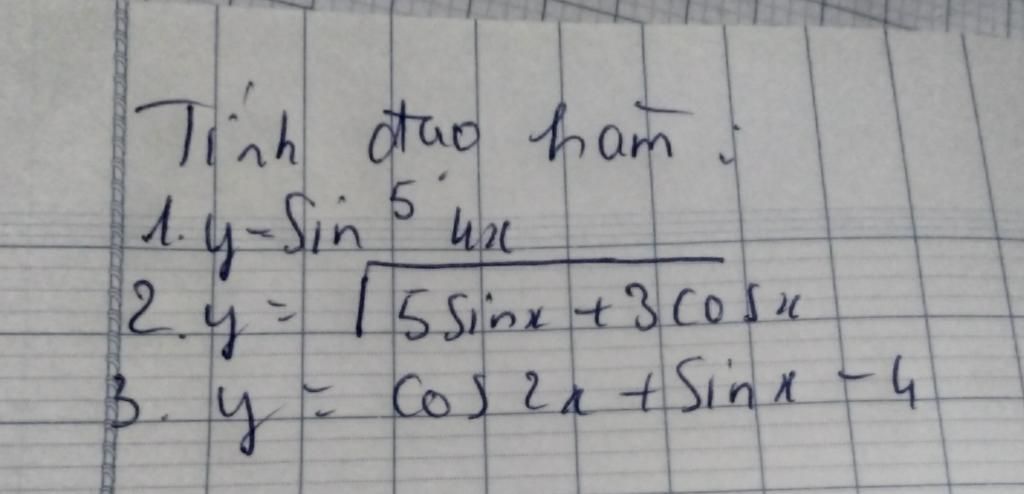 Tính đtạo hàm :
1. y = Sin⁵ 4x
2. y = √(5 Sinx + 3 cosx)
3. y = cos 2x + Sin x - 4